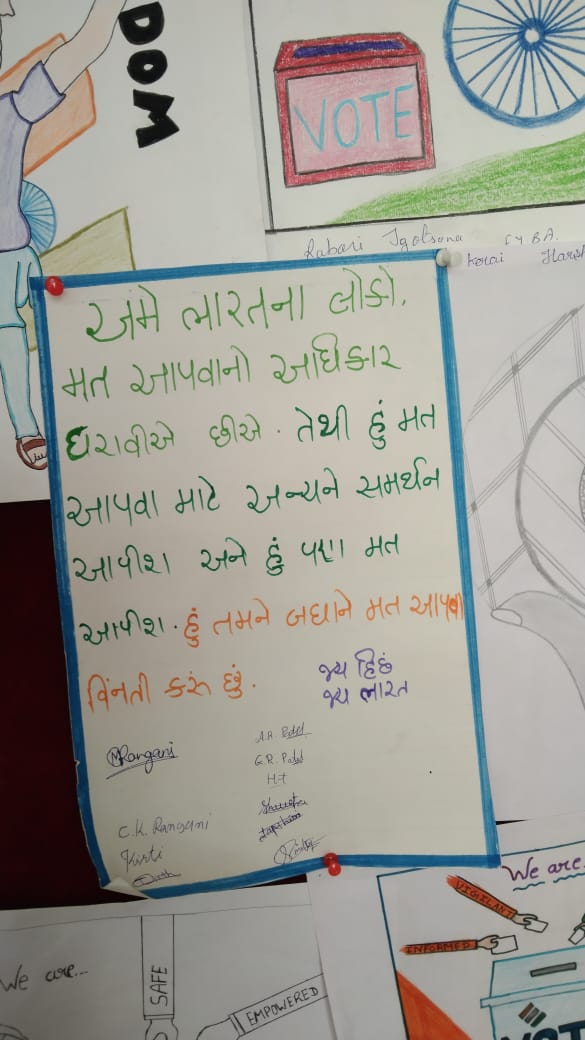 DOM
VOTE
Rabari Jyotsana SYBA.
Harsh
અમે ભારતના લોકો,
મત આપવાનો અધિકાર
ધરાવીએ છીએ. તેથી હું મત
આપવા માટે અન્યને સમર્થન
આપીશ અને હું પણ મત
આપીશ. હું તમને બધાને મત આપવા
વિનંતી કરું છું.
જય હિંદ
જય ભારત
MRangani
A.R. Patel
G.R. Patel
H.T
C.K. Rangani
Kirti
We are...
SAFE
EMPOWERED
We are
VIGILANT
INFORMED
VOT